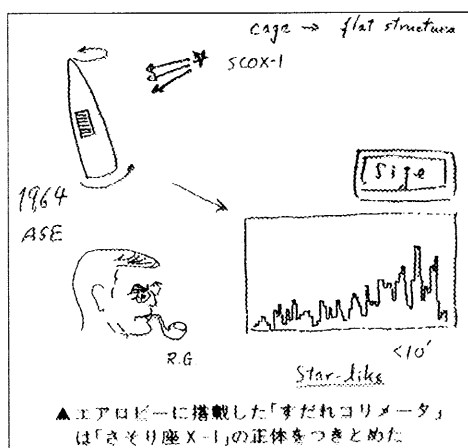 cage → flat structure
SCOX-1
1964
ASE
Size
R.G.
<10'
Star-like
▲エアロビーに搭載した「すだれコリメータ」
は「さそり座X-1」の正体をつきとめた